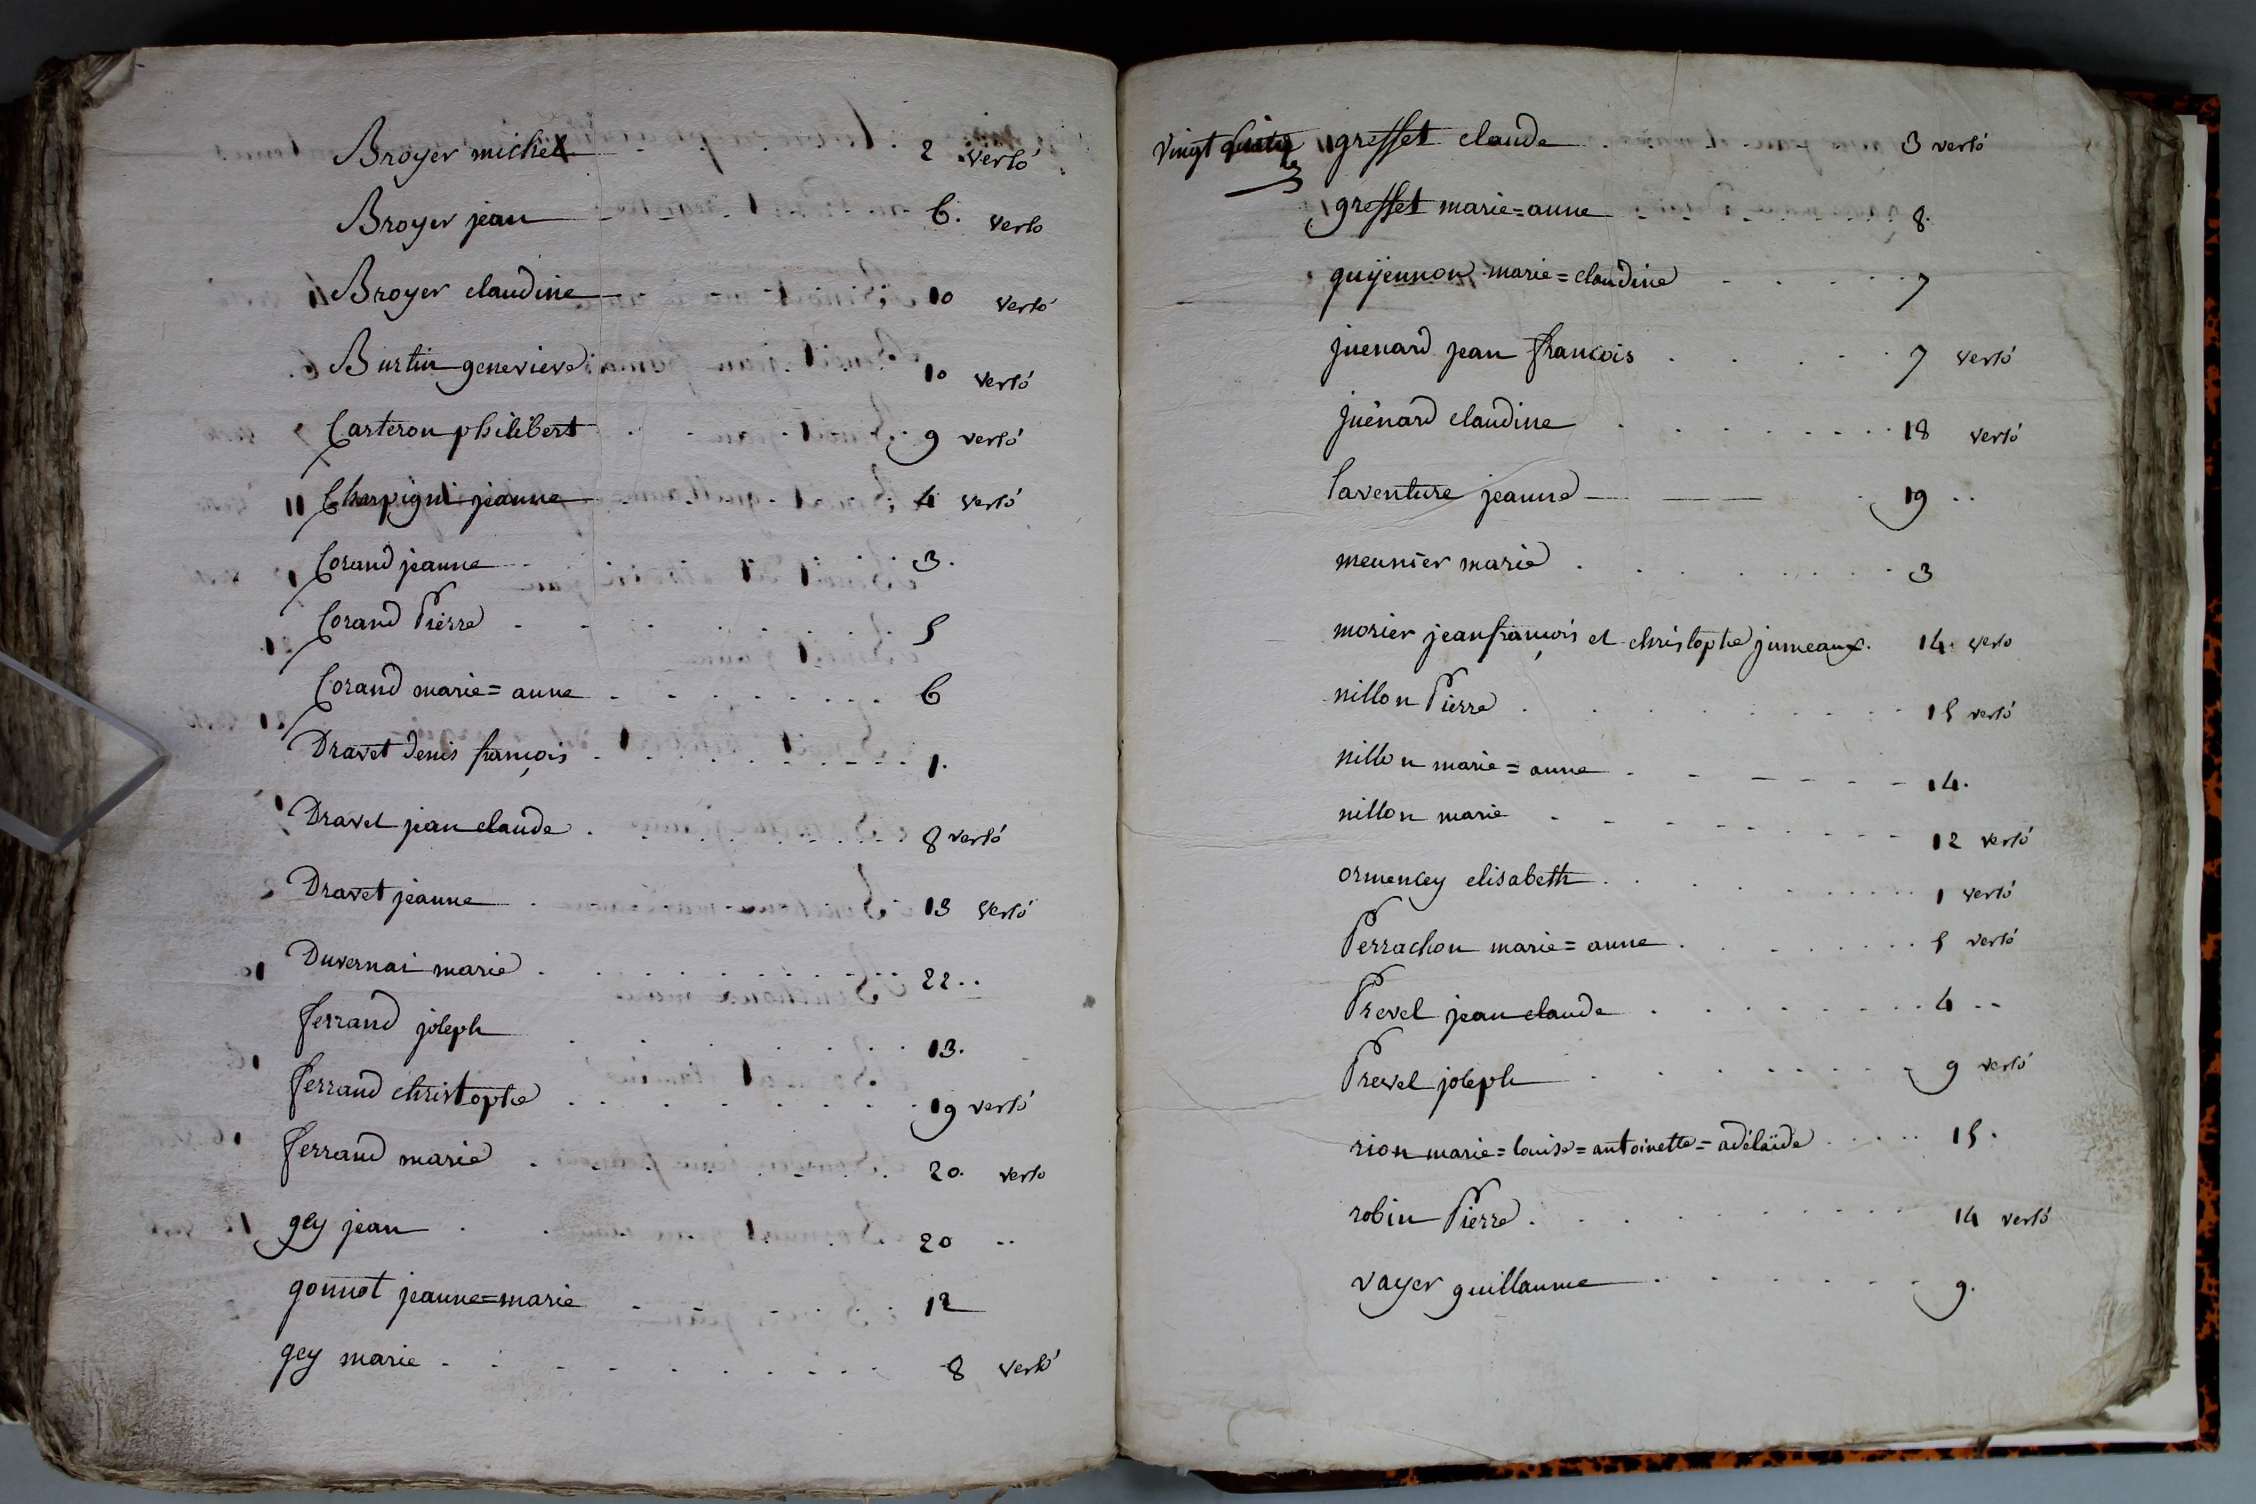 Broyer michel 2 versó
Broyer jean 6. verso
Broyer claudine 10 versó
Burtin genevieve 10 versó
Carteron philibert 9 versó
Charpigni jeanne 4 versó
Corand jeanne 3.
Corand Pierre 5
Corand marie=anne 6
Dravet denis françois 1.
Dravet jean claude 8 versó
Dravet jeanne 13 versó
Duvernai marie 22..
ferrand joseph 13.
ferrand christophe 19 versó
ferrand marie 20. verso
gey jean 20 ..
gonnot jeanne=marie 12
gey marie 8 versó
Vingt gresset claude 3 versó
gresset marie=anne 8.
guijennon marie=claudine 7
juenard jean francois 7 versó
juénard claudine 18 versó
laventure jeanne 19 ..
meunier marie 3
morier jean françois et christophe jumeaux. 14. verso
nillon Pierre 15 versó
nillon marie=anne 14.
nillon marie 12 versó
ormencey elisabeth 1 versó
Perrachon marie=anne 5 versó
Prevel jean claude 4 ..
Prevel joseph 9 versó
rion marie=louise=antoinette=adélaïde 15.
robin Pierre 14 versó
vayer guillaume 9.